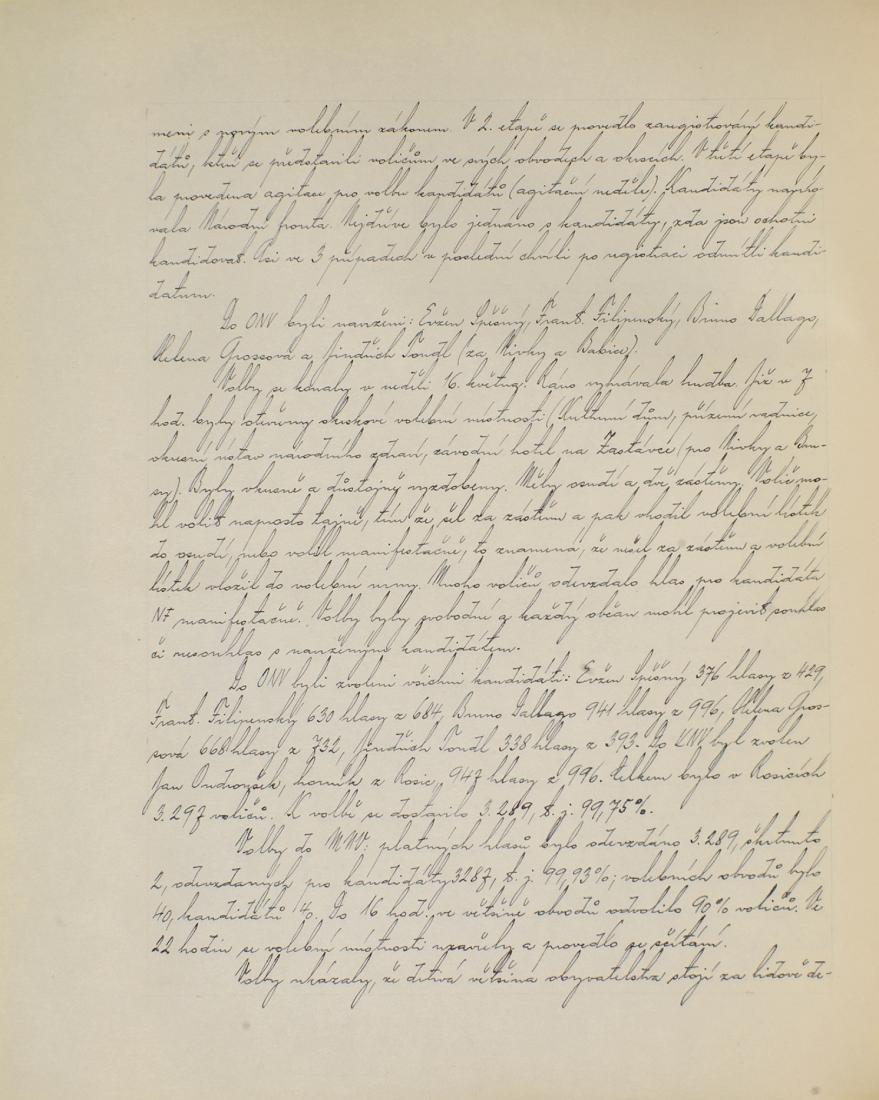 mení s novým volebním zákonem. V 2. etapě se provedlo zaregistrování kandi-
dátů, kteří se představili voličům ve svých obvodech a okrscích. V třetí etapě by-
la provedena agitace pro volbu kandidátů (agitační neděle). Kandidáty navrho-
vala Národní fronta. Nejdříve bylo jednáno s kandidáty, zda jsou ochotni
kandidovat. Asi ve 3 případech v poslední chvíli po registraci odmítli kandi-
daturu.
Do ONV byli navrženi: Evžen Spěšný, Frant. Filipenský, Bruno Dallago,
Helena Grossová a Jindřich Tondl (za Kivky a Babice).
Volby se konaly v neděli 16. května. Ráno vyhrávala hudba. Již v 7
hod. byly otevřeny okrskové volební místnosti (Kulturní dům, přízemí radnice,
okresní ústav národního zdraví, závodní hotel na Zastávce (pro Kivky a Bu-
sy). Byly vkusně a důstojně vyzdobeny. Měly osudí a dvě zástěny. Volič mo-
hl volit naprosto tajně, tím že šel za zástěnu a pak vhodil volební lístek
do osudí, nebo volil manifestačně, to znamená, že nešel za zástěnu a volební
lístek vložil do volební urny. Mnoho voličů odevzdalo hlas pro kandidáta
NF manifestačně. Volby byly svobodné a každý občan mohl projevit souhlas
či nesouhlas s navrženým kandidátem.
Do ONV byli zvoleni všichni kandidáti: Evžen Spěšný 376 hlasy z 429,
Frant. Filipenský 630 hlasy z 684, Bruno Dallago 941 hlasy z 996, Helena Gros-
sová 668 hlasy z 732, Jindřich Tondl 338 hlasy z 393. Do KNV byl zvolen
Jan Ondroušek, horník z Rosic, 947 hlasy z 996. Celkem bylo v Rosicích
3.297 voličů. K volbě se dostavilo 3.289, t. j. 99,75%.
Volby do MNV: platných hlasů bylo odevzdáno 3.289, škrtnuto
2, odevzdaných pro kandidáty 3287, t. j. 99,93%; volebních obvodů bylo
40, kandidátů 40. Do 16 hod. ve většině obvodů odvolilo 90% voličů. Ve
22 hodin se volební místnosti uzavřely a provedlo se sčítání.
Volby ukázaly, že drtivá většina obyvatelstva stojí za lidově de-